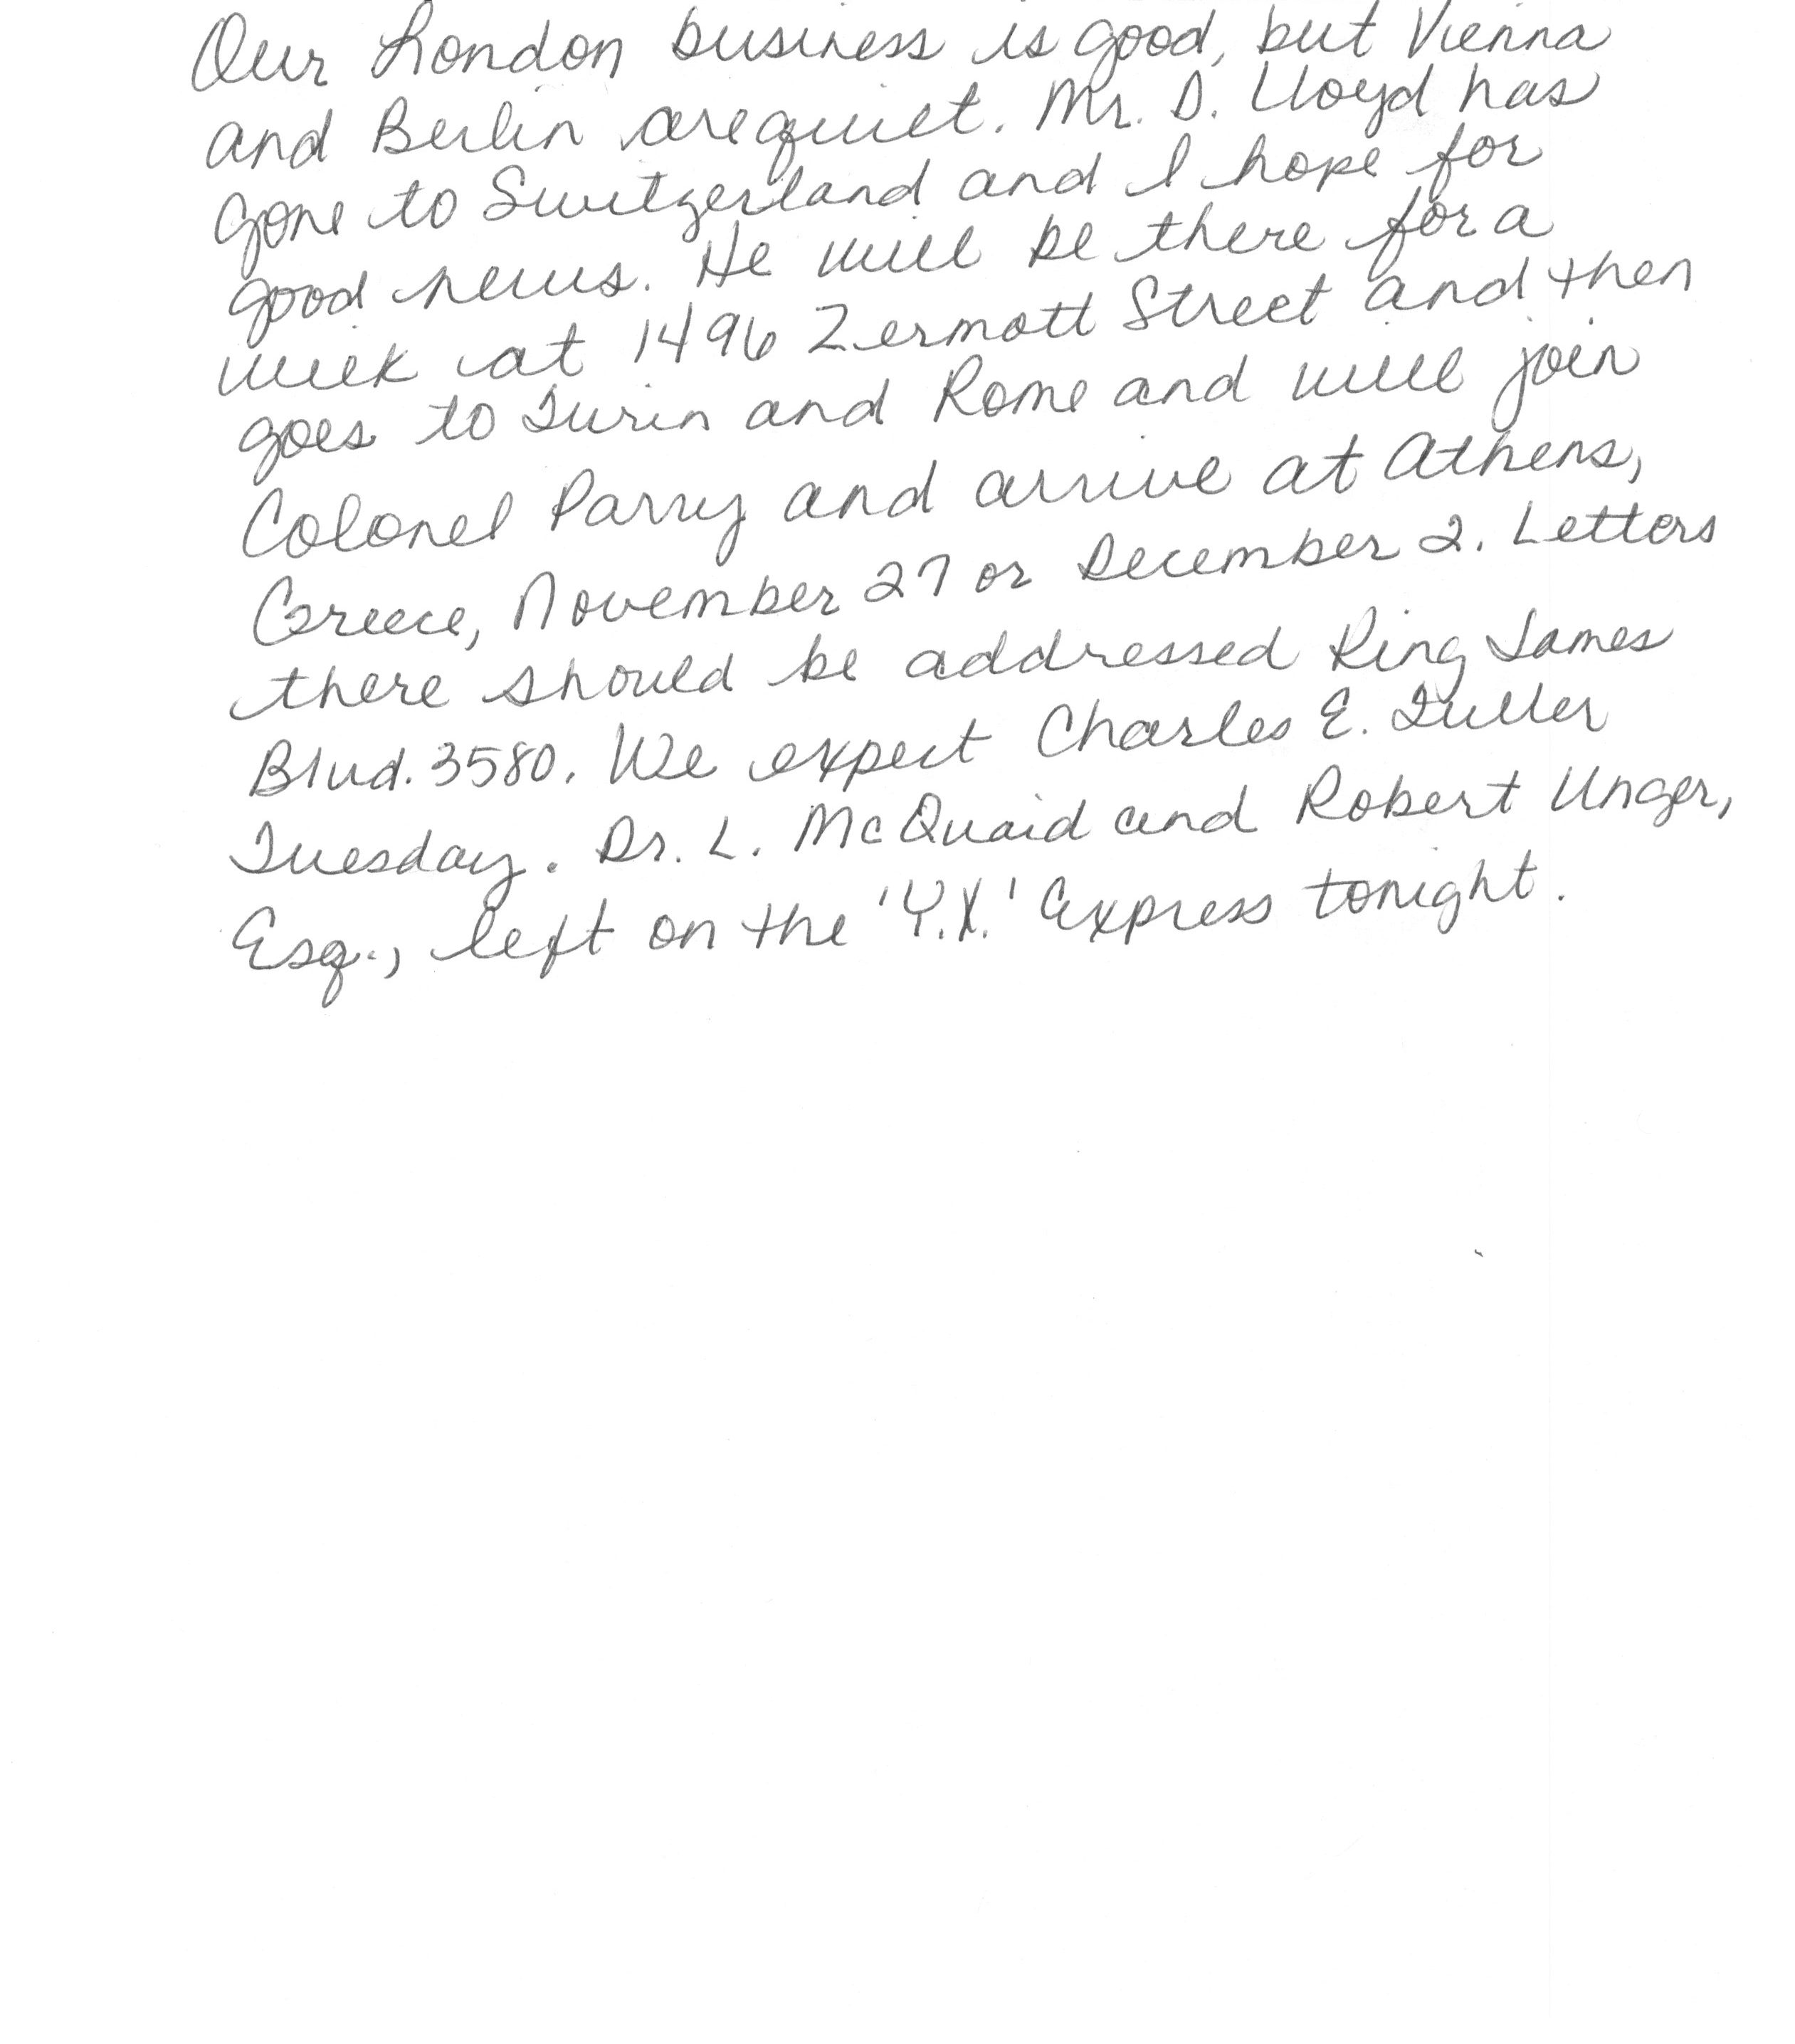 Our London business is good, but Vienna
and Berlin are quiet. Mr. D. Lloyd has
gone to Switzerland and I hope for
good news. He will be there for a
week at 1496 Zermott Street and then
goes to Turin and Rome and will join
Colonel Parry and arrive at Athens,
Greece, November 27 or December 2. Letters
there should be addressed King James
Blvd. 3580. We expect Charles E. Fuller
Tuesday. Dr. L. McQuaid and Robert Unger,
Esq., left on the 'Y.X.' Express tonight.